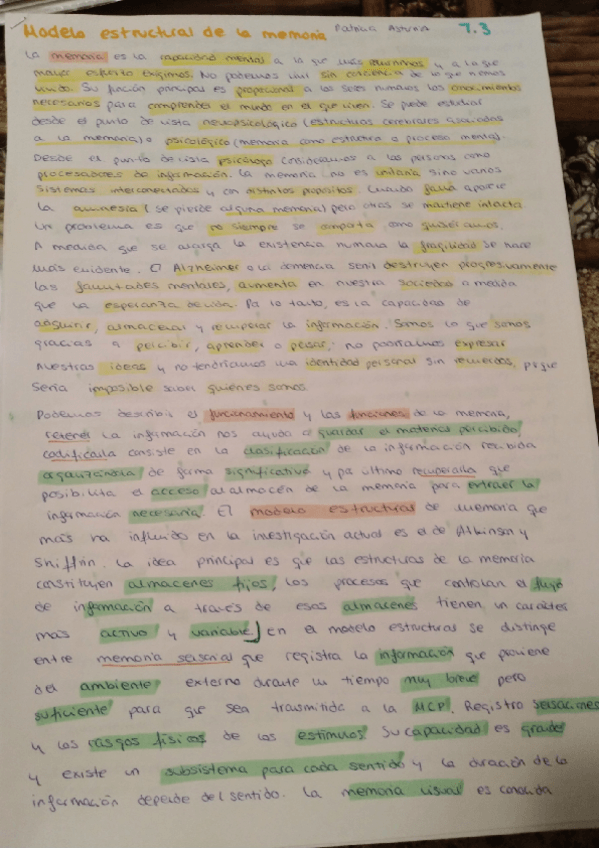 Modelo estructural de la memoria Patricia Asturias 7.3
La memoria es la capacidad mental a la que más recurrimos y a la que
mayor esfuerzo exigimos. No podemos vivir sin conciencia de lo que hemos
vivido. Su función principal es proporcionar a los seres humanos los conocimientos
necesarios para comprender el mundo en el que viven. Se puede estudiar
desde el punto de vista neuropsicológico (estructuras cerebrales asociadas
a la memoria) o psicológico (memoria como estructura o proceso mental).
Desde el punto de vista psicólogo consideramos a las personas como
procesadores de información. La memoria no es unitaria sino varios
sistemas interconectados y con distintos propósitos. Cuando falla aparece
la amnesia (se pierde alguna memoria) pero otras se mantiene intacta
Un problema es que no siempre se comporta como quisiéramos.
A medida que se alarga la existencia humana la fragilidad se hace
más evidente. El Alzheimer o la demencia senil destruyen progresivamente
las facultades mentales, aumenta en nuestra sociedad a medida
que la esperanza de vida. Por lo tanto, es la capacidad de
adquirir, almacenar y recuperar la información. Somos lo que somos
gracias a percibir, aprender o pensar; no podríamos expresar
nuestras ideas y no tendríamos una identidad personal sin recuerdos, porque
sería imposible saber quienes somos
Podemos describir el funcionamiento y las funciones de la memoria,
retener la información nos ayuda a guardar el material percibido,
codificarla consiste en la clasificación de la información recibida
organizándola de forma significativa y por último recuperarla que
posibilita el acceso al almacén de la memoria para extraer la
información necesaria. El modelo estructural de memoria que
más ha influido en la investigación actual es el de Atkinson y
Shiffrin. La idea principal es que las estructuras de la memoria
constituyen almacenes fijos, los procesos que controlan el flujo
de información a través de esos almacenes tienen un carácter
más activo y variable) en el modelo estructuras se distingue
entre memoria sensorial que registra la información que proviene
del ambiente externo durante un tiempo muy breve pero
suficiente para que sea transmitida a la MCP. Registra sensaciones
y los rasgos físicos de los estímulos. Su capacidad es grande
y existe un subsistema para cada sentido y la duración de la
información depende del sentido. La memoria visual es conocida